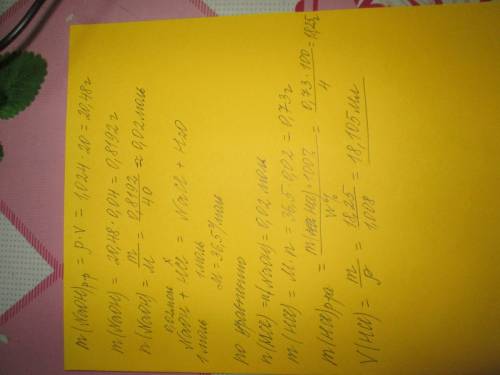 m(NaOH)р-р = ρ·V = 1,024 · 20 = 20,48 г
m(NaOH) = 20,48 · 0,04 = 0,8192 г
n(NaOH) = m/M = 0,8192/40 = 0,02 моль
0,02моль x
NaOH + HCl = NaCl + H2O
1 моль 1 моль
M = 36,5 г/моль
по уравнению
n(HCl) = n(NaOH) = 0,02 моль
m(HCl) = M·n = 36,5·0,02 = 0,73 г
m(HCl)р-ра = m(HCl)·100%/W% = 0,73 · 100/4 = 18,25
V(HCl) = m/ρ = 18,25/1,008 = 18,105 мл